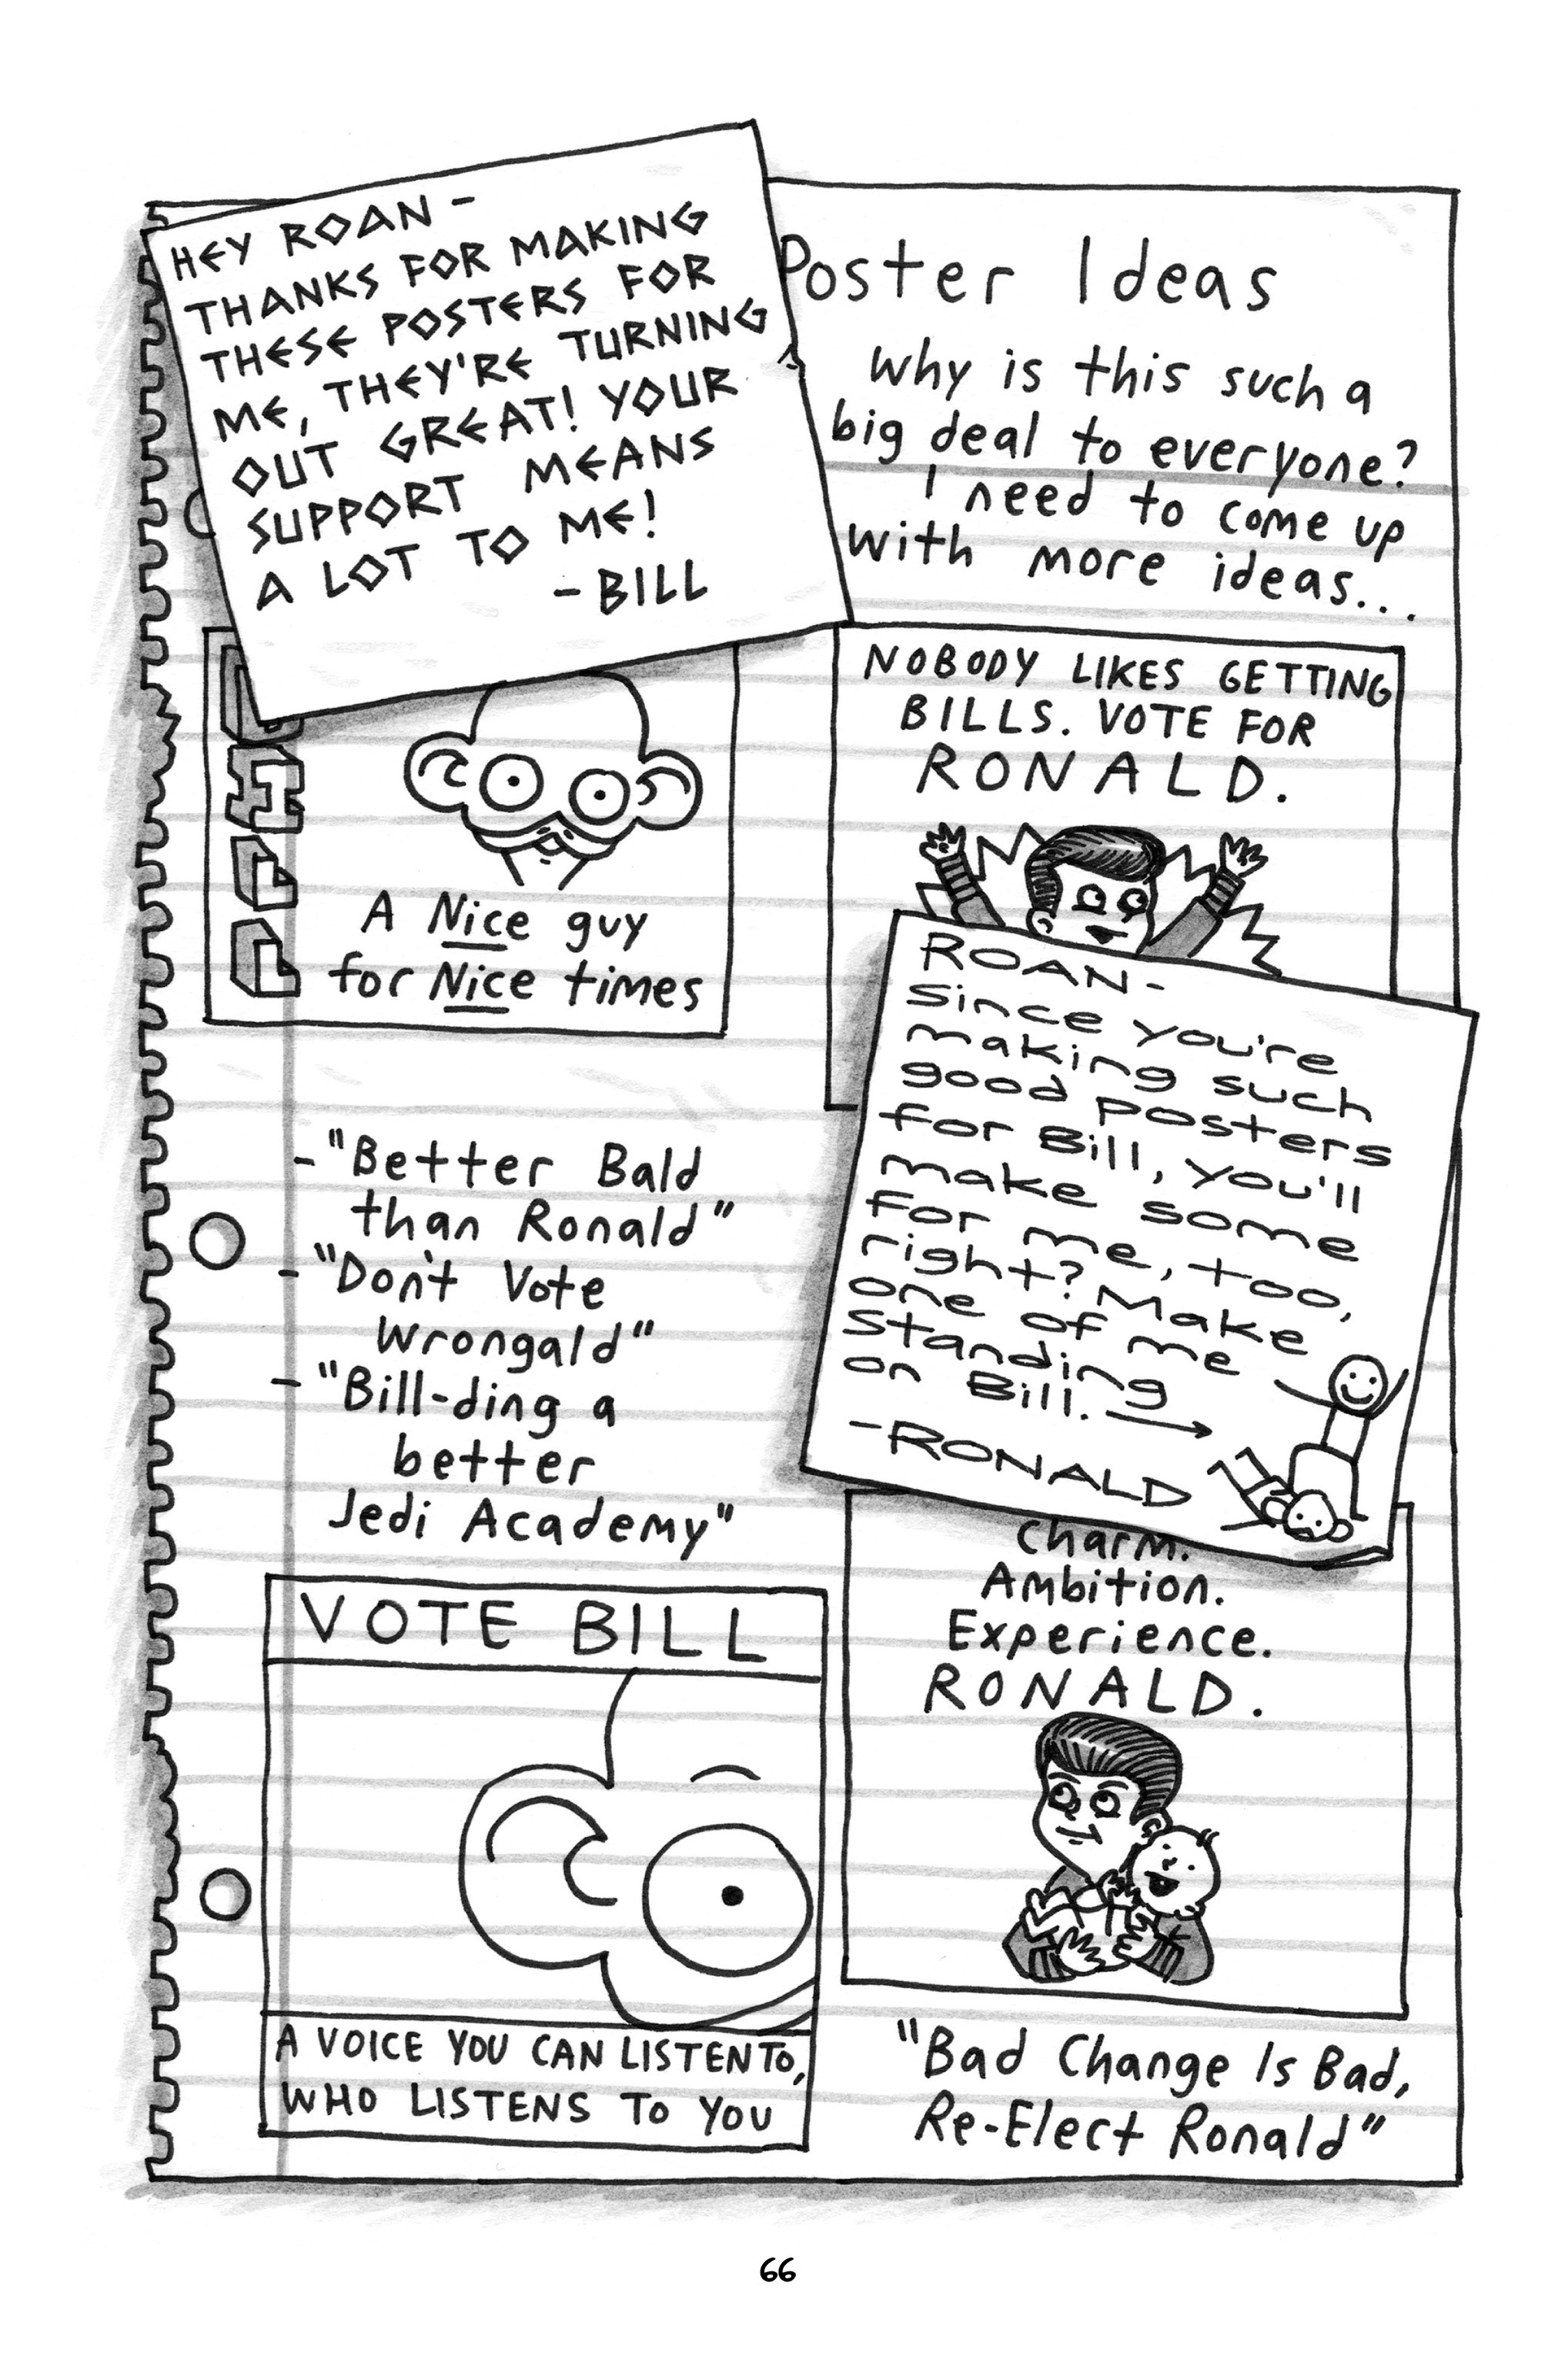 HEY ROAN -
THANKS FOR MAKING
THESE POSTERS FOR
ME, THEY'RE TURNING
OUT GREAT! YOUR
SUPPORT MEANS
A LOT TO ME!
- BILL
Poster Ideas
Why is this such a
big deal to everyone?
I need to come up
with more ideas...
ILL
A Nice guy
for Nice times
NOBODY LIKES GETTING
BILLS. VOTE FOR
RONALD.
ROAN-
Since you're
making such
good posters
for Bill, you'll
make some
for me, too,
right? Make
one of me
standing
on Bill.
-RONALD
-"Better Bald
than Ronald"
-"Don't Vote
Wrongald"
-"Bill-ding a
better
Jedi Academy"
VOTE BILL
A VOICE YOU CAN LISTEN TO,
WHO LISTENS TO YOU
Charm.
Ambition.
Experience.
RONALD.
"Bad Change Is Bad,
Re-Elect Ronald"
66